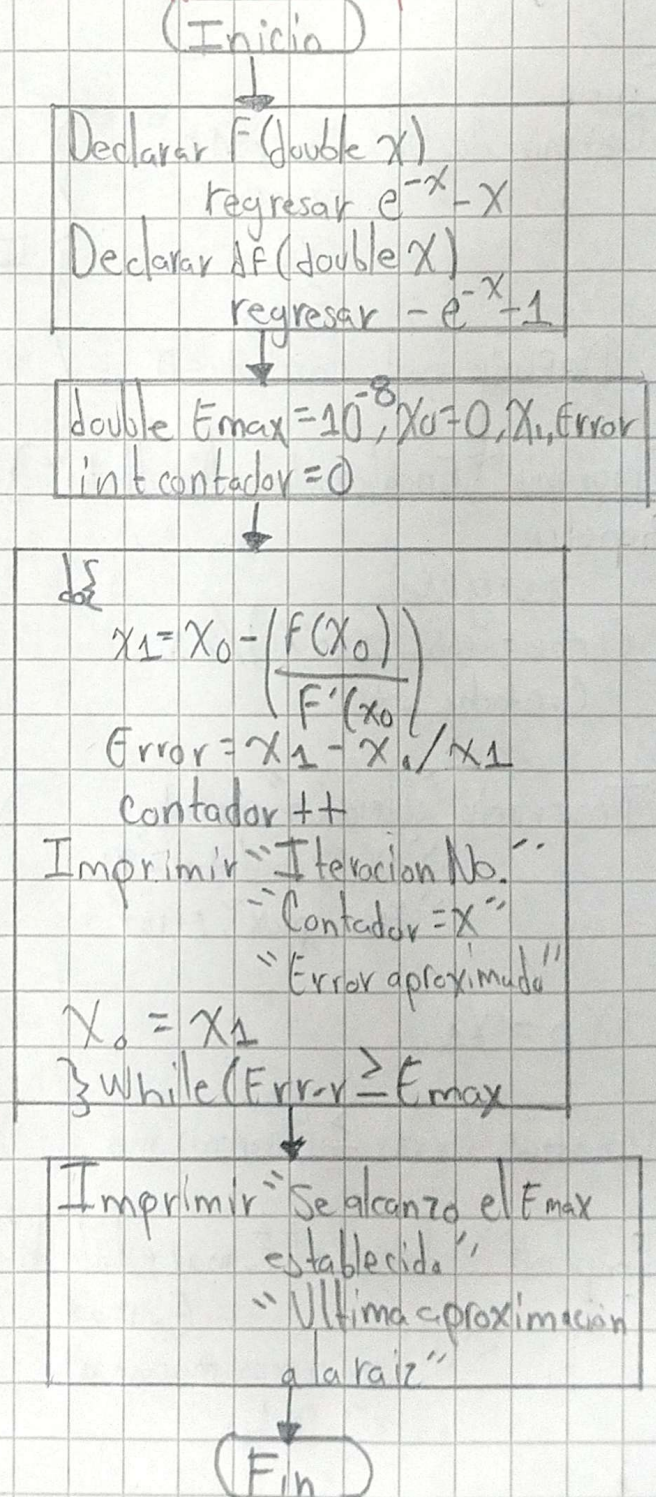 Inicio
Declarar F(double X)
regresar e^-x - X
Declarar df(double X)
regresar -e^-x-1
double Emax=10^-8, X0=0, X1, Error
int contador=0
do{
x1=X0-(F(X0)
F'(x0)
Error=x1-x0/x1
contador++
Imprimir "Iteracion No."
"Contador=X"
"Error aproximado"
X0=x1
}While(Error≥Emax
Imprimir "Se alcanzo el Emax
establecido"
"Ultima aproximación
a la raiz"
Fin